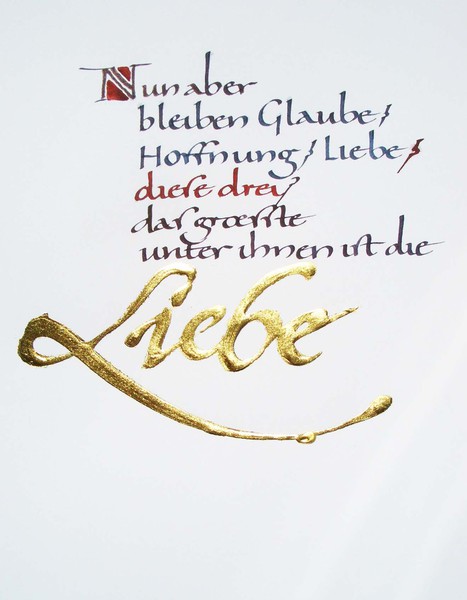 Nun aber
bleiben Glaube/
Hoffnung/ Liebe/
dieſe drey/
das groeſſte
unter ihnen iſt die
Liebe